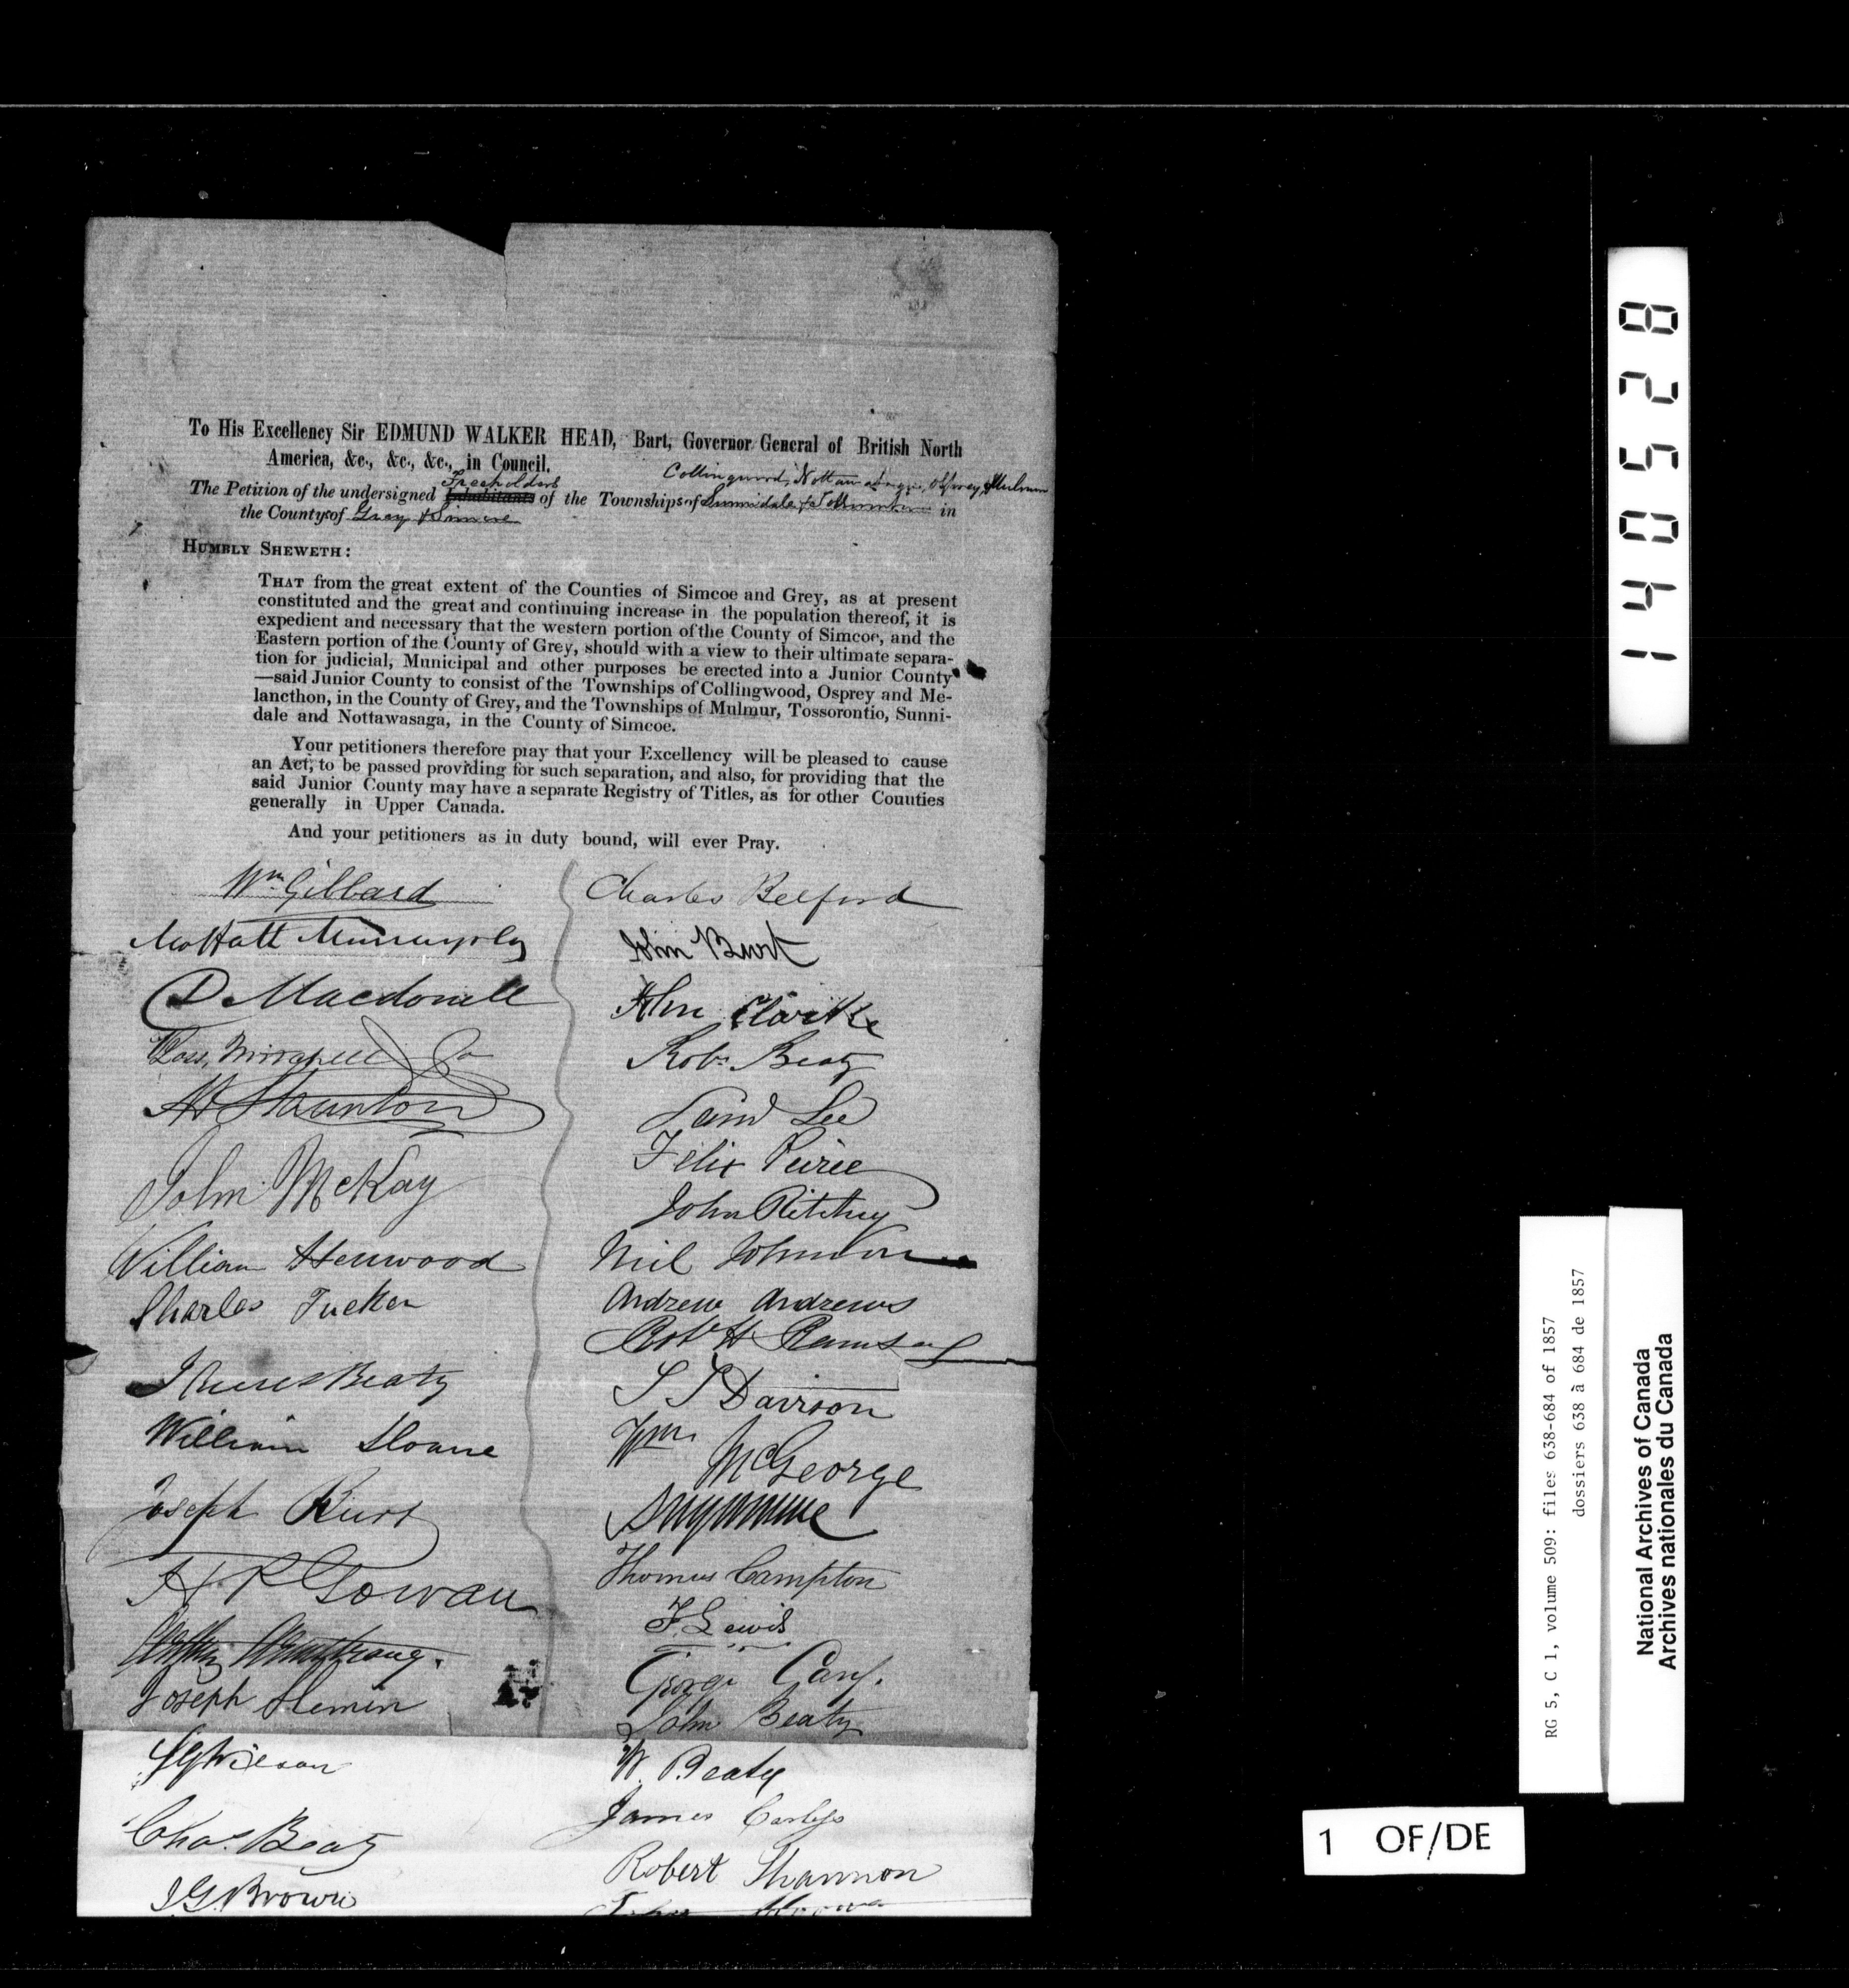 To His Excellency Sir EDMUND WALKER HEAD, Bart, Governor General of British North
America, &c., &c., &c., in Council.
Freeholders
Collingwood, Nottawasaga, Osprey, Mulmur
The Petition of the undersigned Inhabitants of the Townships of Sunnidale & Tossorontio in
the Countys of Grey & Simcoe
HUMBLY SHEWETH:
THAT from the great extent of the Counties of Simcoe and Grey, as at present
constituted and the great and continuing increase in the population thereof, it is
expedient and necessary that the western portion of the County of Simcoe, and the
Eastern portion of the County of Grey, should with a view to their ultimate separa-
tion for judicial, Municipal and other purposes be erected into a Junior County
—said Junior County to consist of the Townships of Collingwood, Osprey and Me-
lancthon, in the County of Grey, and the Townships of Mulmur, Tossorontio, Sunni-
dale and Nottawasaga, in the County of Simcoe.
Your petitioners therefore pray that your Excellency will be pleased to cause
an Act, to be passed providing for such separation, and also, for providing that the
said Junior County may have a separate Registry of Titles, as for other Counties
generally in Upper Canada.
And your petitioners as in duty bound, will ever Pray.
Wm Gibbard
D Macdonell
Staunton
John McKay
William Henwood
Charles Tucker
James Beaty
William Sloane
Joseph Burt
H R Gowan
Armstrong.
Joseph
Wilson
Chas. Beaty
J G Brown
Charles Belford
John Burt
John Clarke
Robt Beaty
Lee
Felix
John Ritchey
Neil Johnson
Andrew Andrews
Robt H Ramsay
Davison
Wm McGeorge
Thomas Campton
F. Lewis
George
John Beaty
W. Beaty
James
Robert Shannon
140528
RG 5, C 1, volume 509: files 638-684 of 1857
dossiers 638 à 684 de 1857
National Archives of Canada
Archives nationales du Canada
1 OF/DE